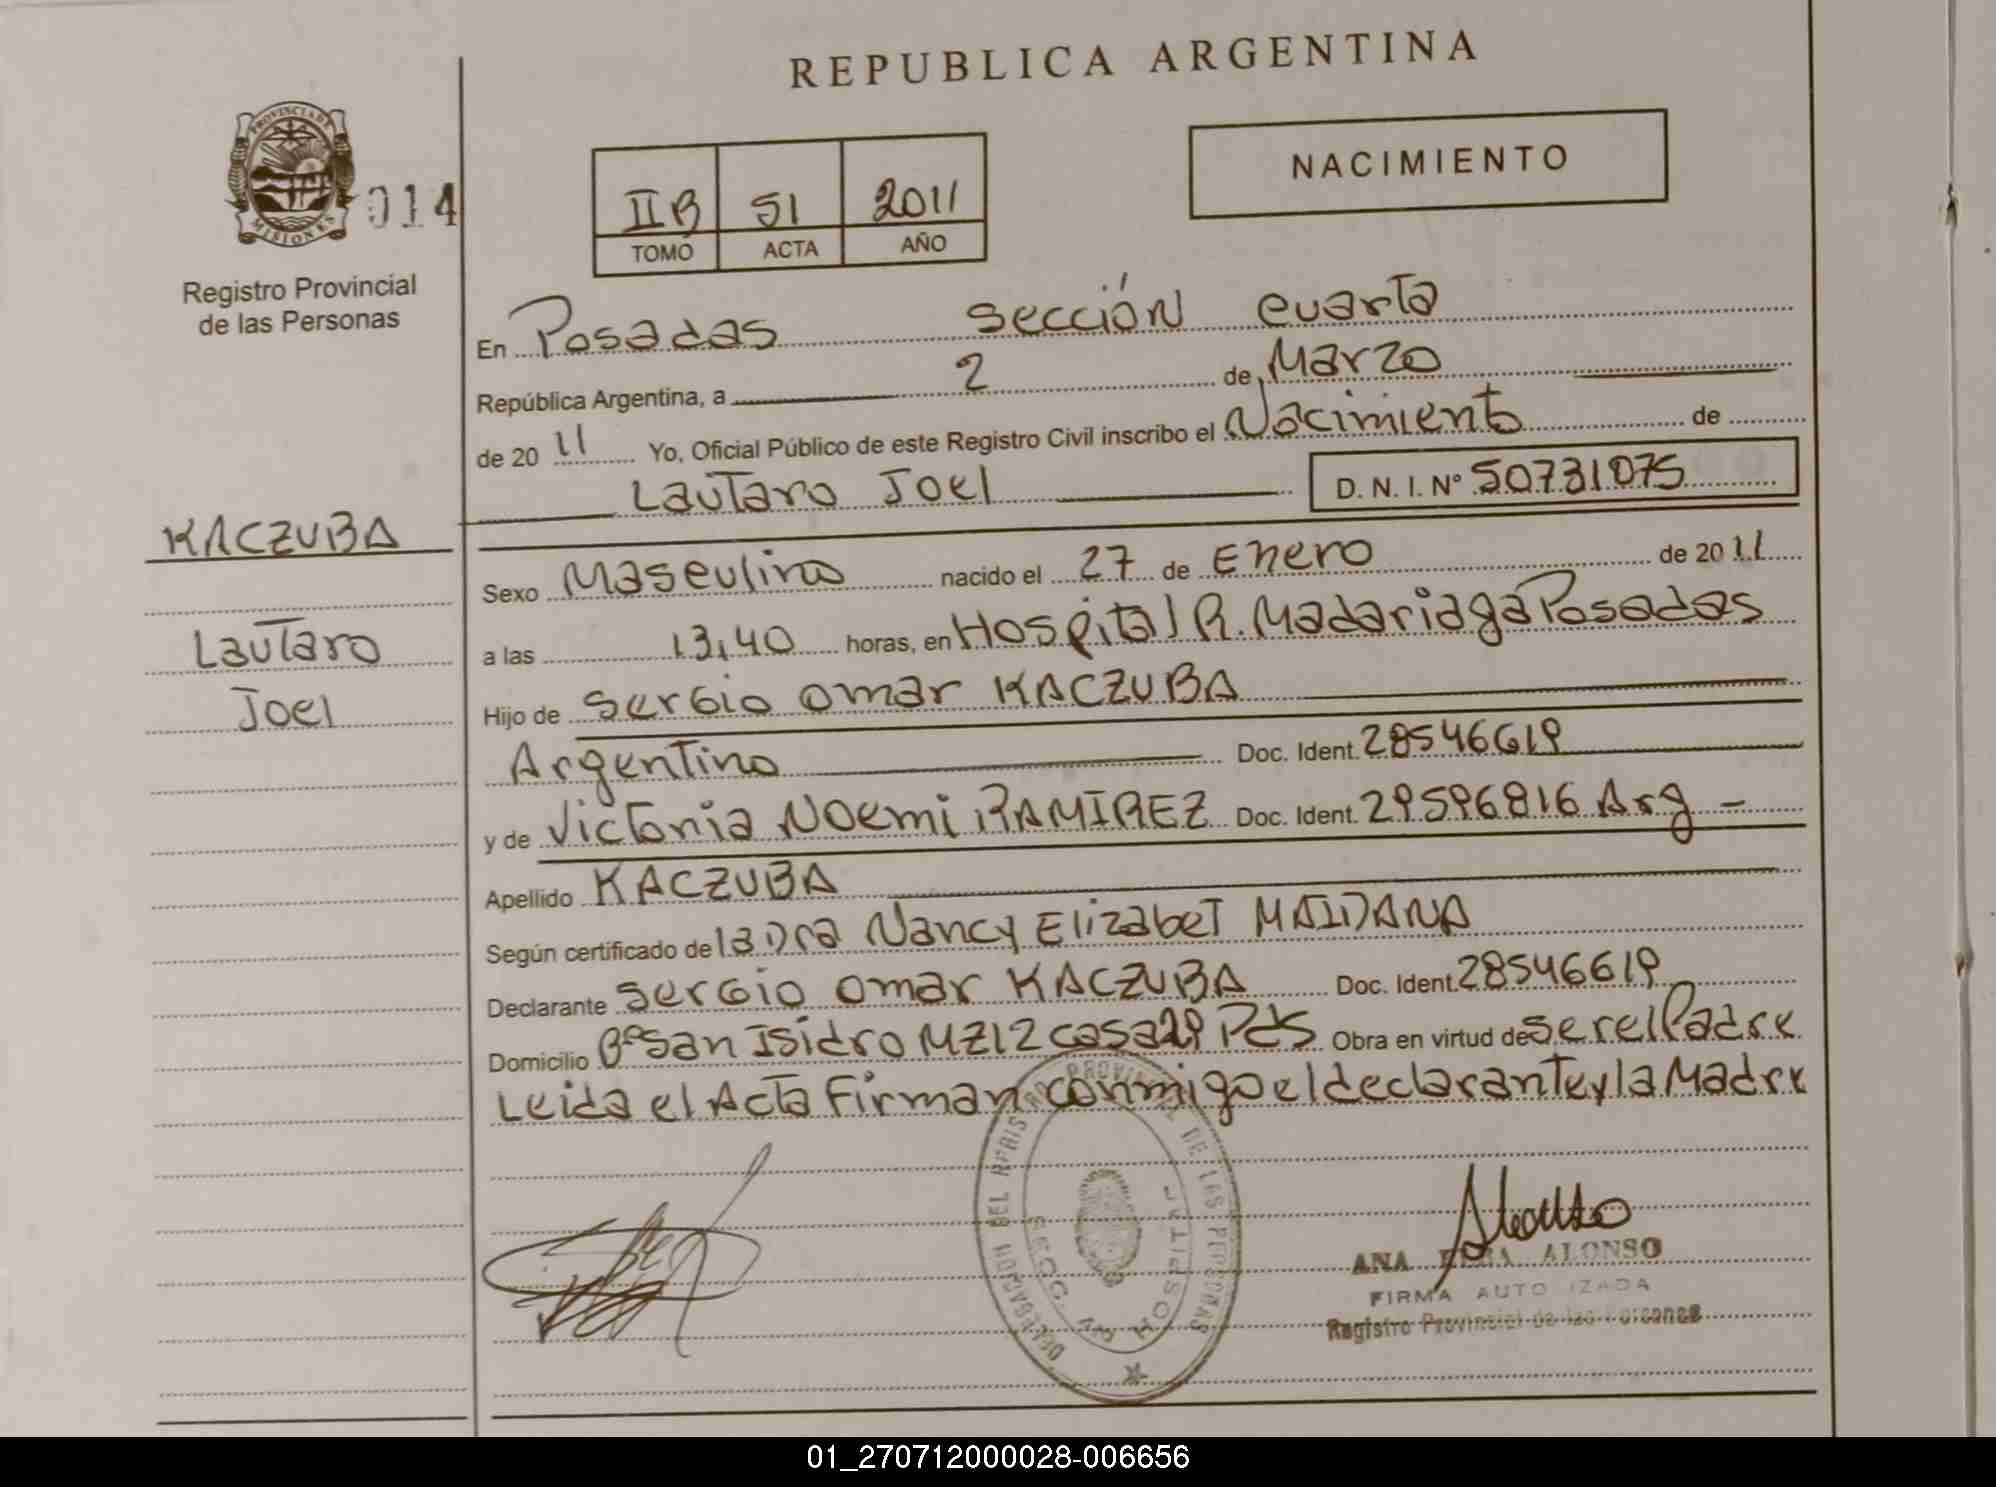 REPUBLICA ARGENTINA
PROVINCIA DE
MISIONES
014
Registro Provincial
de las Personas
IIB 51 2011
TOMO ACTA AÑO
NACIMIENTO
En Posadas sección cuarta
República Argentina, a 2 de Marzo
de 20 11 Yo, Oficial Público de este Registro Civil inscribo el Nacimiento de
Lautaro Joel D. N. I. Nº 50731075
KACZUBA
Lautaro
Joel
Sexo Masculino nacido el 27 de Enero de 2011
a las 13,40 horas, en Hospital R. Madariaga Posadas
Hijo de Sergio Omar KACZUBA
Argentino Doc. Ident. 28546619
y de Victoria Noemi RAMIREZ Doc. Ident. 29596816 Arg -
Apellido KACZUBA
Según certificado de la Dra Nancy Elizabet MAIDANA
Declarante Sergio Omar KACZUBA Doc. Ident. 28546619
Domicilio Bº San Isidro MZ12 casa 29 Pds Obra en virtud de ser el Padre
Leida el Acta Firman conmigo el declarante y la Madre
DELEGACION DEL REGISTRO PROVINCIAL DE LAS PERSONAS
SECC. HOSPITAL
ANA ALONSO
FIRMA AUTORIZADA
Registro Provincial de las Personas
01_270712000028-006656